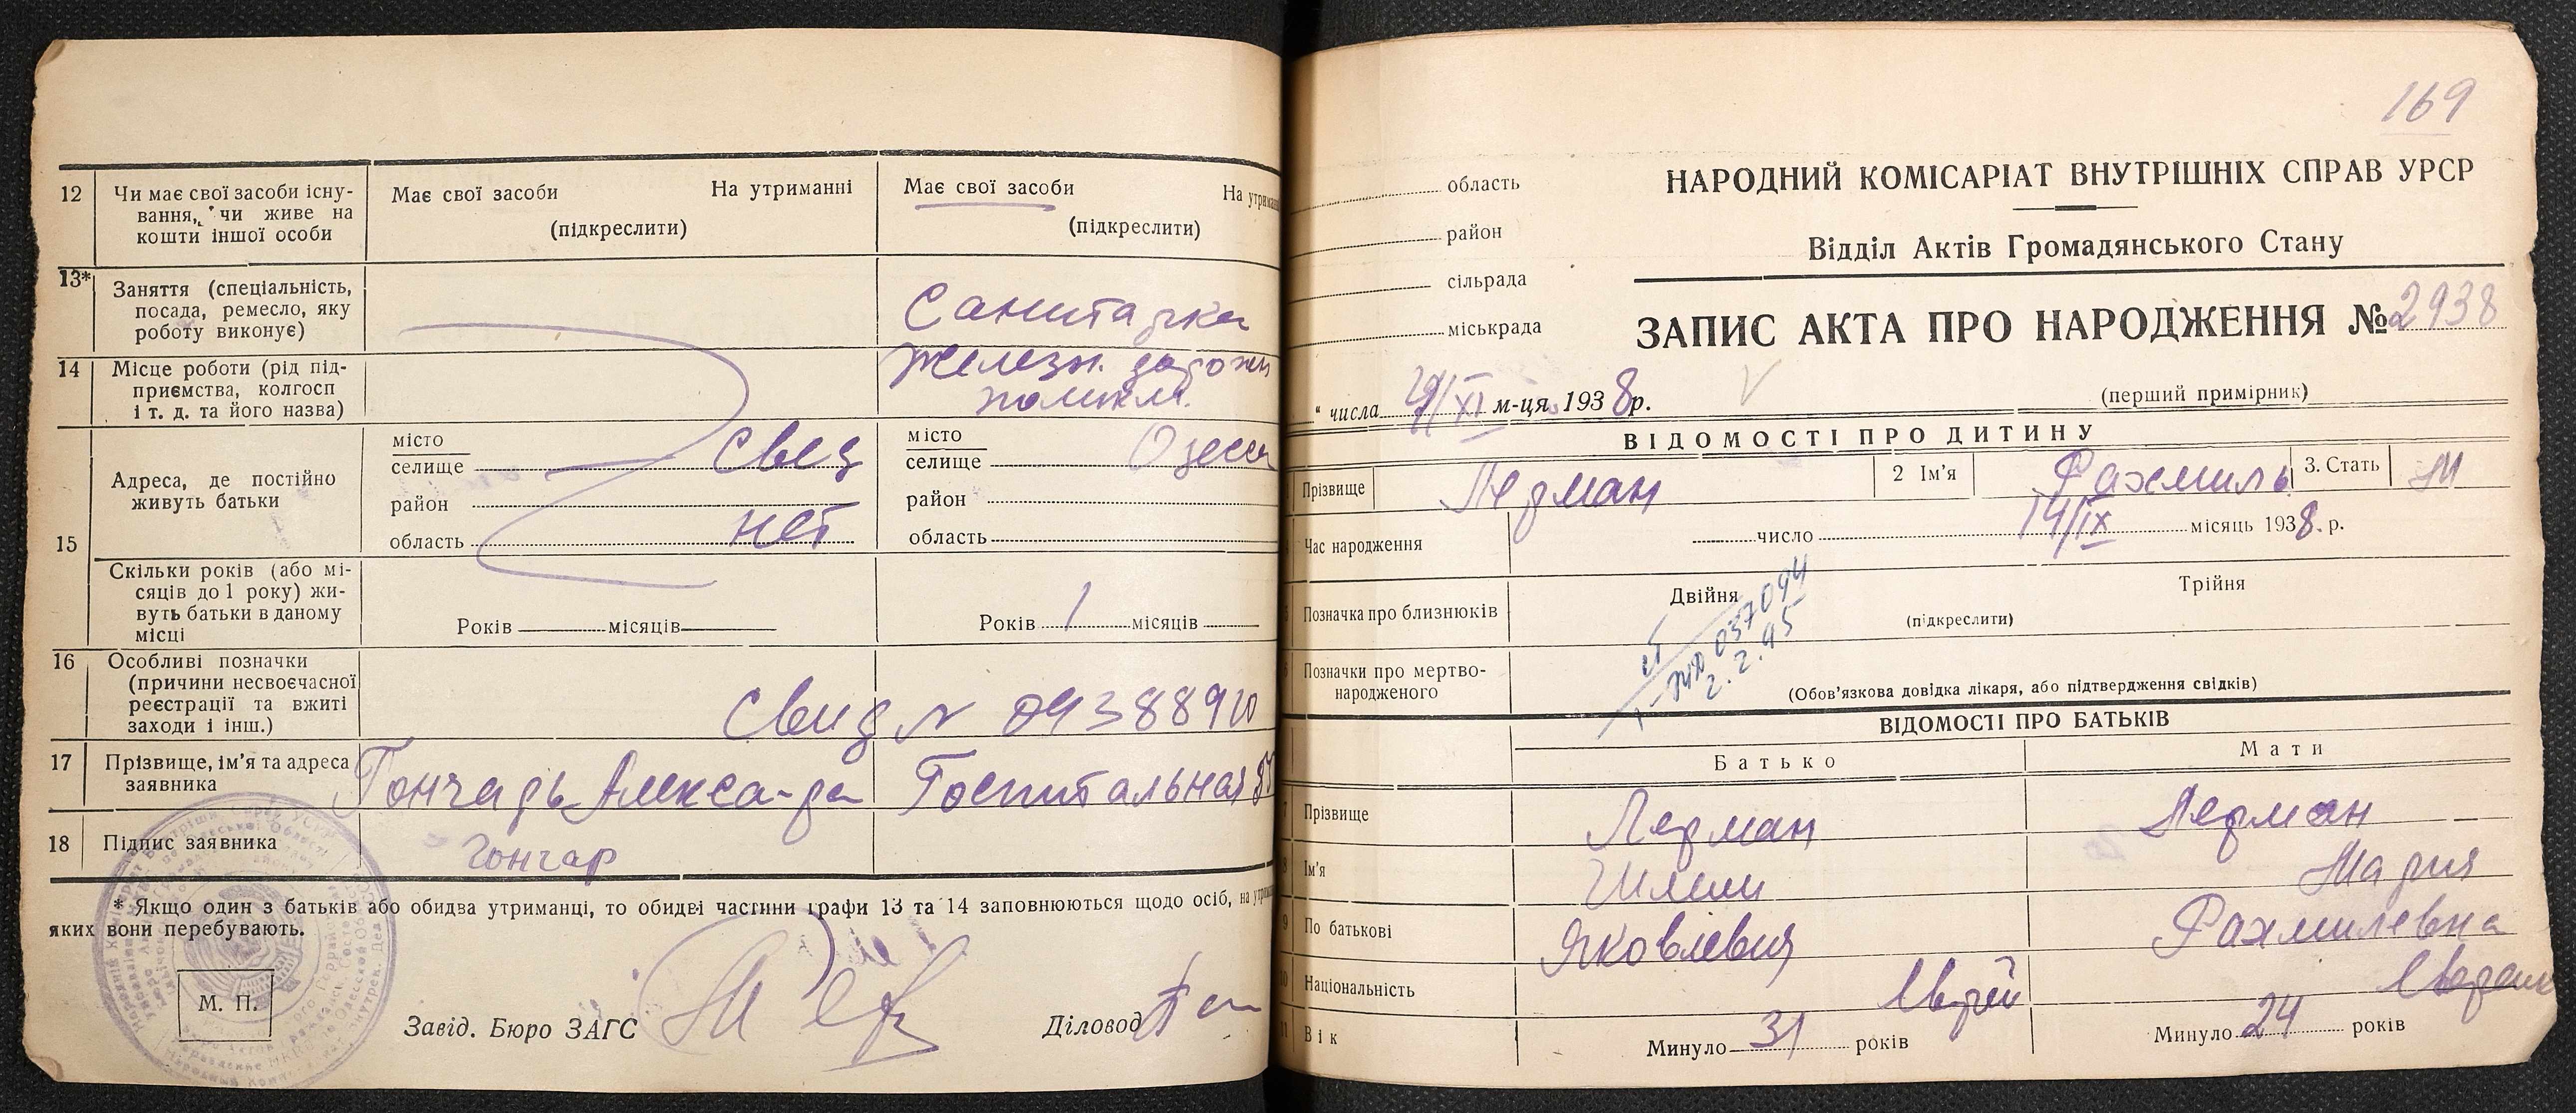 12 Чи має свої засоби існу-
вання, чи живе на
кошти іншої особи
Має свої засоби На утриманні
(підкреслити)
Має свої засоби На утриманні
(підкреслити)
13* Заняття (спеціальність,
посада, ремесло, яку
роботу виконує)
Санитарка
14 Місце роботи (рід під-
приємства, колгосп
і т. д. та його назва)
Железн. дорожн
поликл.
15 Адреса, де постійно
живуть батьки
місто
селище
район
область
свед
нет
місто
селище Одесса
район
область
Скільки років (або мі-
сяців до 1 року) жи-
вуть батьки в даному
місці
Років місяців
Років 1 місяців
16 Особливі позначки
(причини несвоєчасної
реєстрації та вжиті
заходи і інш.)
Свид N
17 Прізвище, ім'я та адреса
заявника
Гончарь Александра Госпитальная
18 Підпис заявника
Гончар
* Якщо один з батьків або обидва утриманці, то обидві частини графи 13 та 14 заповнюються щодо осіб, на
яких вони перебувають.
М. П.
Завід. Бюро ЗАГС
Діловод
169
область
район
сільрада
міськрада
НАРОДНИЙ КОМІСАРІАТ ВНУТРІШНІХ СПРАВ УРСР
Відділ Актів Громадянського Стану
ЗАПИС АКТА ПРО НАРОДЖЕННЯ № 2938
(перший примірник)
" числа /XI м-ця 1938 р.
ВІДОМОСТІ ПРО ДИТИНУ
Прізвище Лерман 2 Ім'я Рахмиль 3. Стать М
Час народження число 14/IX місяць 1938. р.
Позначка про близнюків Двійня Трійня
(підкреслити)
Позначки про мертво-
народженого
(Обов'язкова довідка лікаря, або підтвердження свідків)
037094
2.2.95
ВІДОМОСТІ ПРО БАТЬКІВ
Батько Мати
7 Прізвище Лерман Лерман
8 Ім'я Шлема Мария
9 По батькові Яковлевич Рахмилевна
10 Національність Еврей Еврейка
11 Вік Минуло 31 років Минуло 24 років